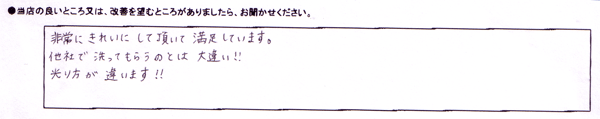 ●当店の良いところ又は、改善を望むところがありましたら、お聞かせください。
非常にきれいにして頂いて満足しています。
他社で洗ってもらうのとは大違い!!
光り方が違います!!